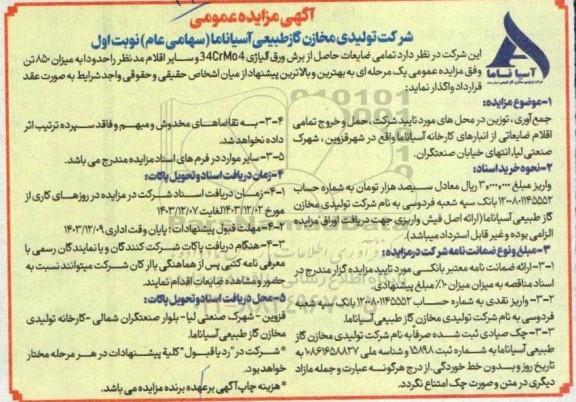 آگهی مزایده عمومی
شرکت تولیدی مخازن گاز طبیعی آسیاناما (سهامی عام) نوبت اول
آسیا ناما
این شرکت در نظر دارد تمامی ضایعات حاصل از برش ورق آلیاژی 34CrMo4 و سایر اقلام مد نظر را حدودا به میزان ۸۵۰ تن
وفق مزایده عمومی یک مرحله ای به بهترین و بالاترین پیشنهاد از میان اشخاص حقیقی و حقوقی واجد شرایط به صورت عقد
قرارداد واگذار نماید:
۱-موضوع مزایده:
جمع آوری، توزین در محل های مورد تایید شرکت، حمل و خروج تمامی
اقلام ضایعاتی از انبارهای کارخانه آسیاناما واقع در شهر قزوین، شهرک
صنعتی لیا، انتهای خیابان صنعتگران.
۲-نحوه خرید اسناد:
واریز مبلغ ۳,۰۰۰,۰۰۰ ریال معادل سیصد هزار تومان به شماره حساب
۱۲۰۸۰۱۱۴۵۵۵۲ بانک سپه شعبه فردوسی به نام شرکت تولیدی مخازن
گاز طبیعی آسیاناما (ارائه اصل فیش واریزی جهت دریافت اوراق مزایده
الزامی بوده و غیر قابل استرداد میباشد).
۳-مبلغ و نوع ضمانت نامه شرکت در مزایده:
۳-۱-ارائه ضمانت نامه معتبر بانکی مورد تایید مزایده گزار مندرج در
اسناد مناقصه به میزان ۱۰٪ مبلغ پیشنهادی.
۳-۲- واریز نقدی به شماره حساب ۱۲۰۸۰۱۱۴۵۵۵۲ بانک سپه شعبه
فردوسی به نام شرکت تولیدی مخازن گاز طبیعی آسیاناما.
۳-۳-چک صیادی ثبت شده صرفا به نام شرکت تولیدی مخازن گاز
طبیعی آسیاناما به شماره ثبت ۱۵۸۹۸ و شناسه ملی ۱۰۸۶۱۴۵۸۸۳۷ به
تاریخ روز و بدون خط خوردگی. از درج هرگونه عبارت و جمله مازاد
دیگری در متن و صورت چک امتناع نگردد.
۳-۴- به تقاضاهای مخدوش و مبهم و فاقد سپرده ترتیب اثر
داده نخواهد شد.
۳-۵-سایر موارد در فرم های اسناد مزایده مندرج می باشد.
۴-زمان دریافت اسناد و تحویل پاکات:
۴-۱-زمان دریافت اسناد شرکت در مزایده در روزهای کاری از
مورخ ۱۴۰۳/۱۲/۰۲ لغایت ۱۴۰۳/۱۲/۰۷
۴-۲-مهلت قبول پیشنهادات: پایان وقت اداری ۱۴۰۳/۱۲/۰۹
۴-۳- هنگام دریافت پاکات شرکت کنندگان و یا نمایندگان رسمی با
معرفی نامه کتبی پس از هماهنگی با ارکان شرکت میتوانند نسبت به
حضور و مشاهده ضایعات اقدام نمایند.
۵-محل دریافت اسناد و تحویل پاکات:
قزوین - شهرک صنعتی لیا- بلوار صنعتگران شمالی -کارخانه تولیدی
مخازن گاز طبیعی آسیاناما.
*شرکت در "رد یا قبول" کلیه پیشنهادات در هر مرحله مختار
خواهد بود.
*هزینه چاپ آگهی بر عهده برنده مزایده می باشد.